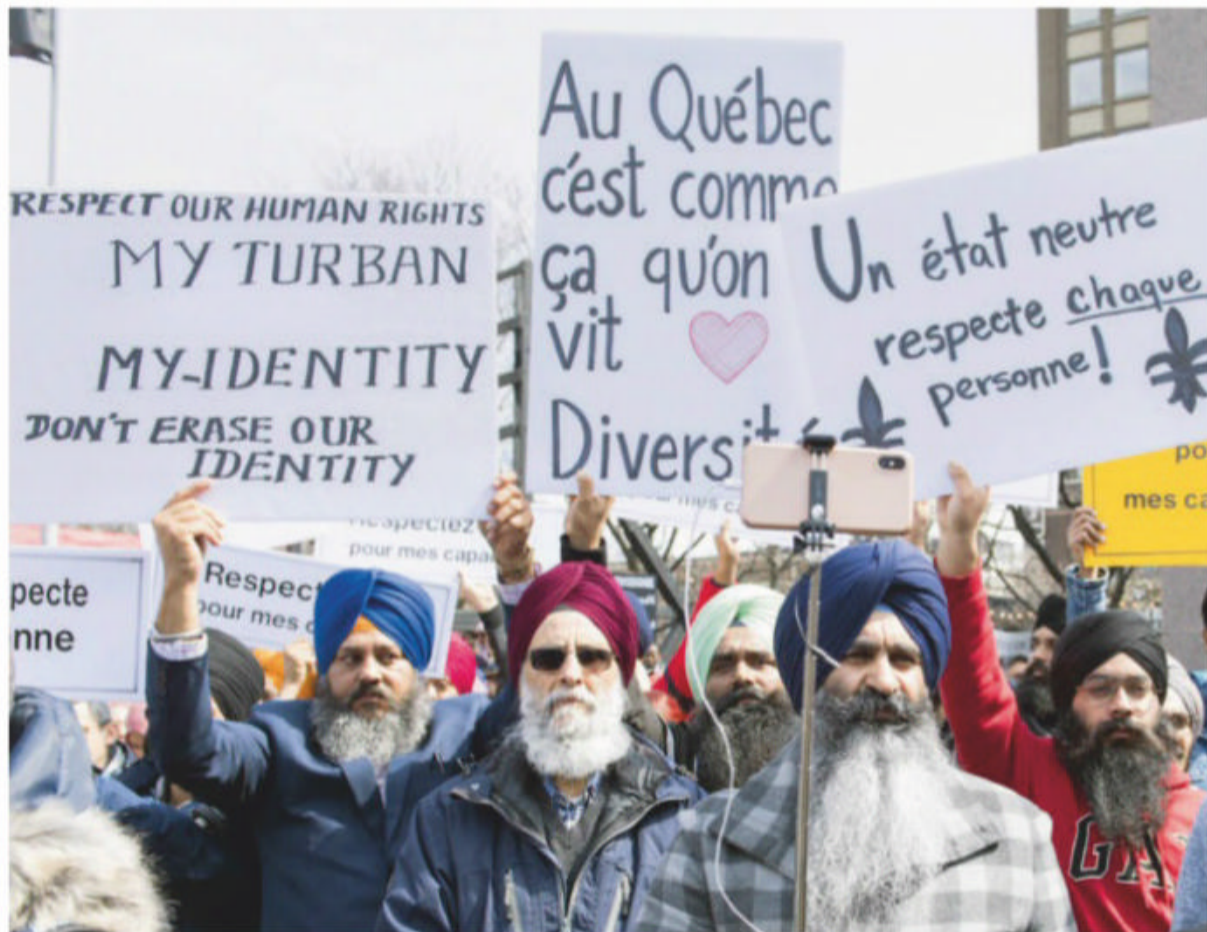 RESPECT OUR HUMAN RIGHTS
MY TURBAN
MY-IDENTITY
DON'T ERASE OUR
IDENTITY
Au Québec
c'est comme
ça qu'on
vit
Diversité
Un état neutre
respecte chaque
personne!
po
mes ca
mes c
Respectez
pour mes capa
Respect
pour mes c
pecte
nne
GA